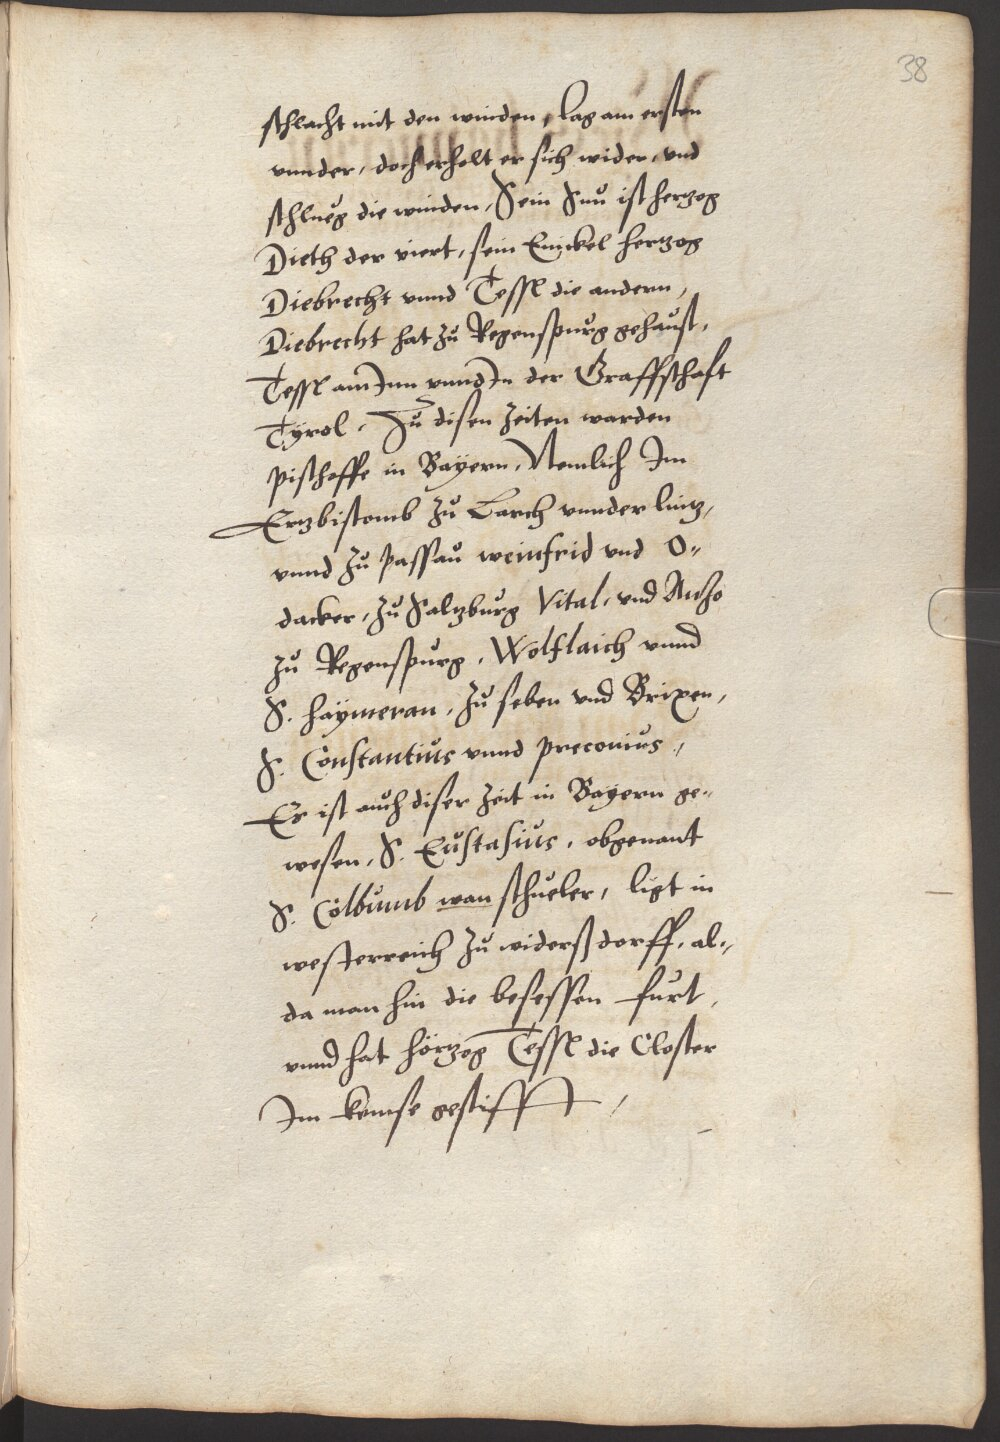 38
schlacht mit den winden, lag am ersten
vnnder, doch erholt er sich wider, vnd
schlueg die winden, Sein Sun ist hertzog
Dieth der viert, sein Enickel hertzog
Diebrecht vnnd Tessl die andern,
Diebrecht hat zu Regenspurg gehaust,
Tessl am Inn vnnd In der Graffschaft
Tyrol, Zu disen Zeiten warden
pischoffe in Bayern, Nemlich Im
Ertzbistomb zu Larch vnnder lintz,
vnnd zu passau weinfrid vnd O"
dacker, zu Saltzburg Vital, vnd Ansho
zu Regenspurg, Wolflaich vnnd
S. haymeran, zu seben vnd Brixen,
S. Constantius vnnd preconius,
Er ist auch diser Zeit in Bayern ge"
wesen, S. Eustasius, obgenant
S. Colbumb wan schueler, ligt in
westerreich zu widerßdorff, al"
da man hin die besessen furt,
vnnd hat hörtzog Tessl die Closter
Im kemse gestifft,